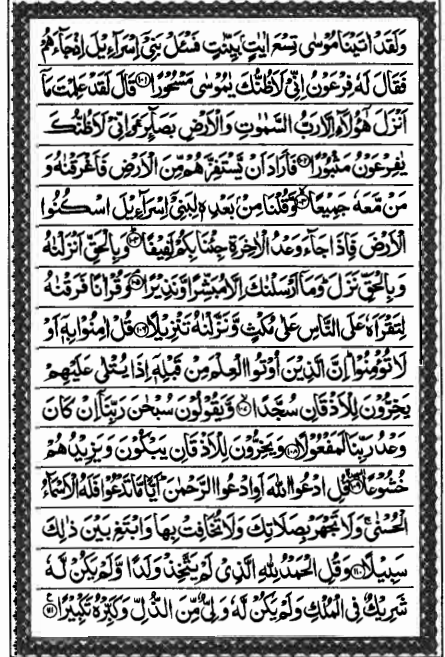 وَلَقَدْ اٰتَيْنَا مُوْسٰى تِسْعَ اٰيٰتٍۭ بَيِّنٰتٍ فَسْـَٔلْ بَنِيْٓ اِسْرَآءِيْلَ اِذْ جَآءَهُمْ
فَقَالَ لَهٗ فِرْعَوْنُ اِنِّيْ لَاَظُنُّكَ يٰمُوْسٰى مَسْحُوْرًا ۝۱۰۱ قَالَ لَقَدْ عَلِمْتَ مَآ
اَنْزَلَ هٰٓؤُلَآءِ اِلَّا رَبُّ السَّمٰوٰتِ وَالْاَرْضِ بَصَآئِرَ وَاِنِّيْ لَاَظُنُّكَ
يٰفِرْعَوْنُ مَثْبُوْرًا ۝۱۰۲ فَاَرَادَ اَنْ يَّسْتَفِزَّهُمْ مِّنَ الْاَرْضِ فَاَغْرَقْنٰهُ وَ
مَنْ مَّعَهٗ جَمِيْعًا ۝۱۰۳ وَّقُلْنَا مِنْۢ بَعْدِهٖ لِبَنِيْٓ اِسْرَآءِيْلَ اسْكُنُوا
الْاَرْضَ فَاِذَا جَآءَ وَعْدُ الْاٰخِرَةِ جِئْنَا بِكُمْ لَفِيْفًا ۝۱۰۴ وَبِالْحَقِّ اَنْزَلْنٰهُ
وَبِالْحَقِّ نَزَلَ ؕ وَمَآ اَرْسَلْنٰكَ اِلَّا مُبَشِّرًا وَّنَذِيْرًا ۝۱۰۵ وَقُرْاٰنًا فَرَقْنٰهُ
لِتَقْرَاَهٗ عَلَى النَّاسِ عَلٰى مُكْثٍ وَّنَزَّلْنٰهُ تَنْزِيْلًا ۝۱۰۶ قُلْ اٰمِنُوْا بِهٖٓ اَوْ
لَا تُؤْمِنُوْا ؕ اِنَّ الَّذِيْنَ اُوْتُوا الْعِلْمَ مِنْ قَبْلِهٖٓ اِذَا يُتْلٰى عَلَيْهِمْ
يَخِرُّوْنَ لِلْاَذْقَانِ سُجَّدًا ۝۱۰۷ وَّيَقُوْلُوْنَ سُبْحٰنَ رَبِّنَآ اِنْ كَانَ
وَعْدُ رَبِّنَا لَمَفْعُوْلًا ۝۱۰۸ وَيَخِرُّوْنَ لِلْاَذْقَانِ يَبْكُوْنَ وَيَزِيْدُهُمْ
خُشُوْعًا ۝۱۰۹ قُلِ ادْعُوا اللّٰهَ اَوِ ادْعُوا الرَّحْمٰنَ ؕ اَيًّا مَّا تَدْعُوْا فَلَهُ الْاَسْمَآءُ
الْحُسْنٰى ۚ وَلَا تَجْهَرْ بِصَلَاتِكَ وَلَا تُخَافِتْ بِهَا وَابْتَغِ بَيْنَ ذٰلِكَ
سَبِيْلًا ۝۱۱۰ وَقُلِ الْحَمْدُ لِلّٰهِ الَّذِيْ لَمْ يَتَّخِذْ وَلَدًا وَّلَمْ يَكُنْ لَّهٗ
شَرِيْكٌ فِي الْمُلْكِ وَلَمْ يَكُنْ لَّهٗ وَلِيٌّ مِّنَ الذُّلِّ وَكَبِّرْهُ تَكْبِيْرًا ۝۱۱۱